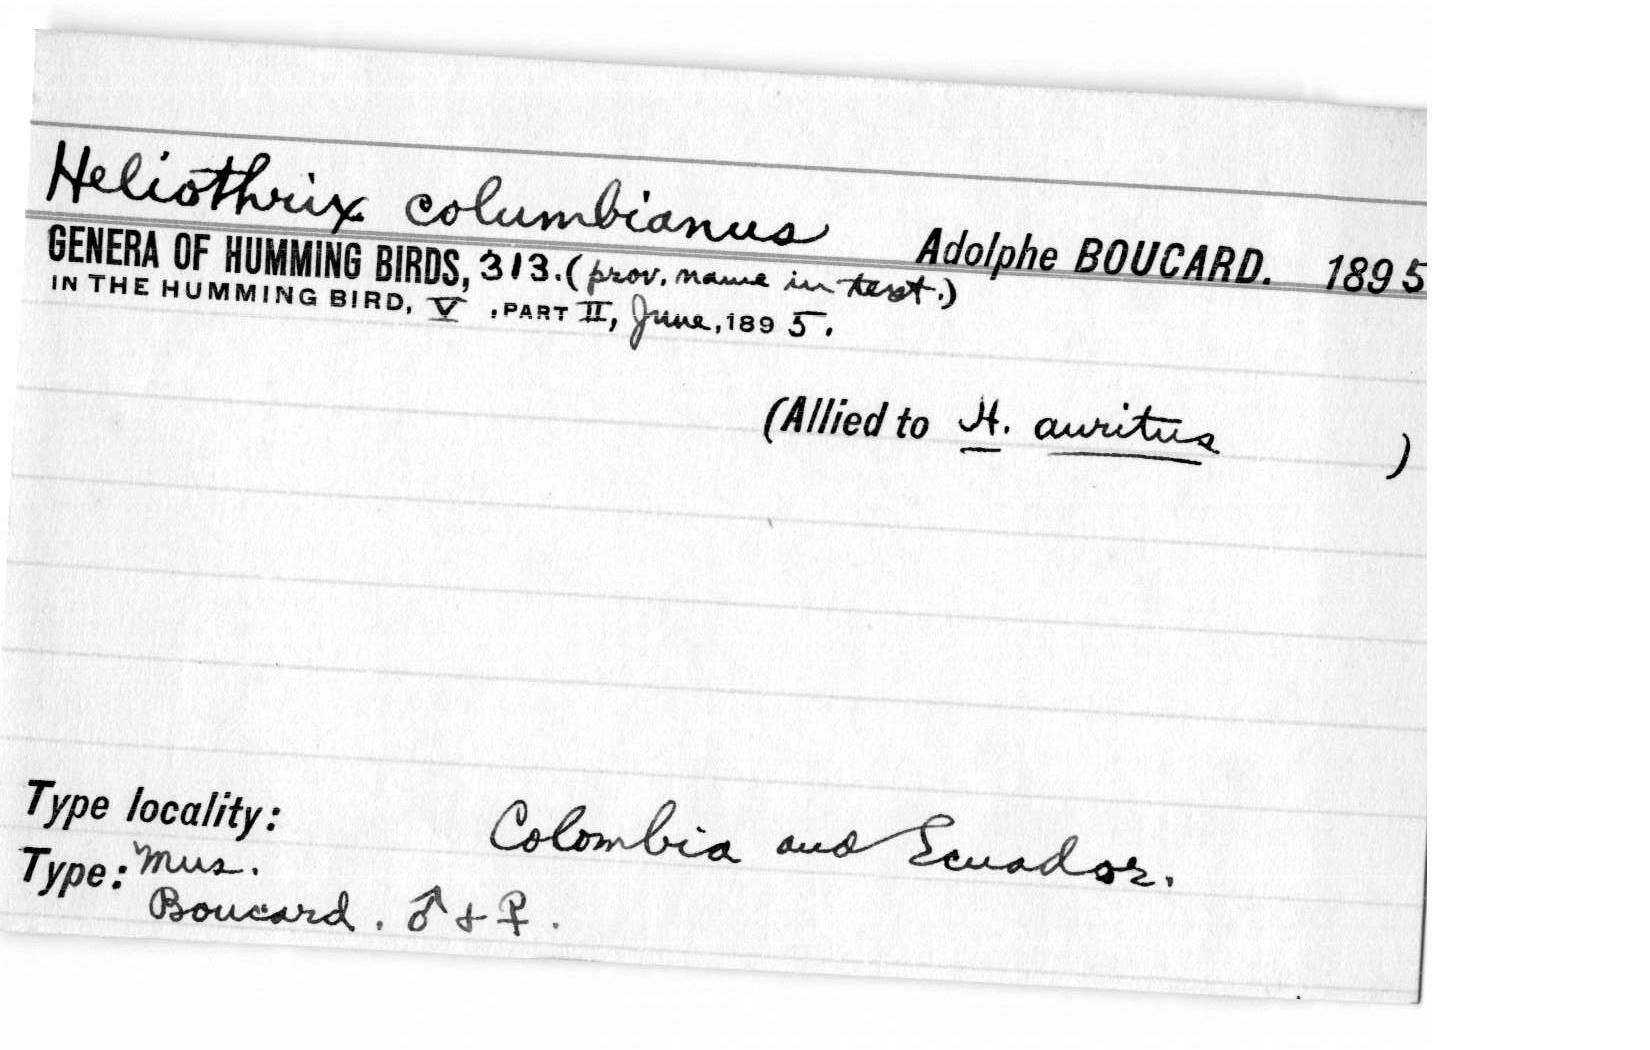 Heliothrix columbianus Adolphe BOUCARD. 1895
GENERA OF HUMMING BIRDS, 313. (prov. name in text.)
IN THE HUMMING BIRD, V , PART II, June, 1895.
(Allied to H. auritus )
Type locality: Colombia and Ecuador.
Type: Mus.
Boucard. ♂ + ♀.